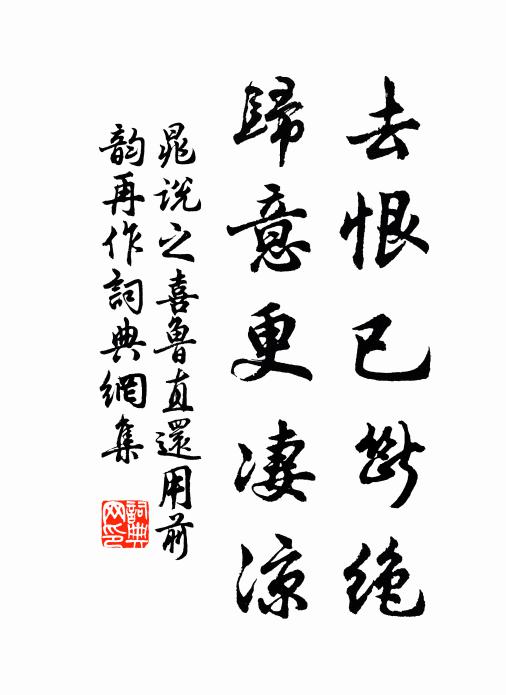 去恨已斷絶
歸意更凄涼
晁说之喜魯直還用前
韵再作詞典網集
詞典網印